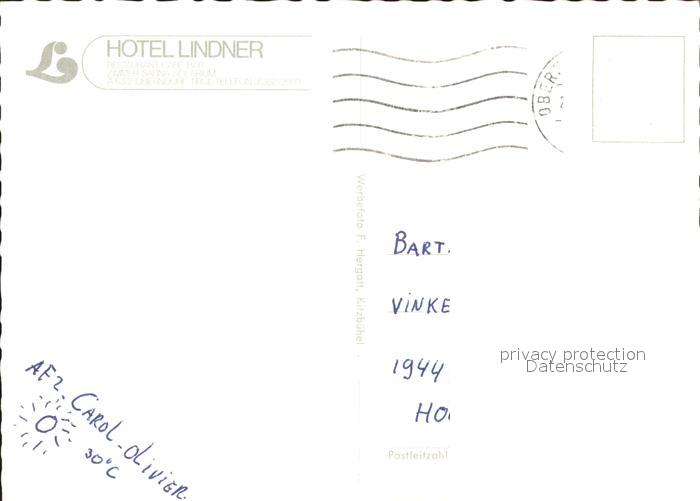 HOTEL LINDNER
RESTAURANT CAFE BAR
ZIMMER SAUNA SOLARIUM
A-6372 OBERNDORF TIROL TELEFON
OBER
Werbefoto F. Hergott, Kitzbühel
BART.
VINKE
1944
HO
privacy protection
Datenschutz
Postleitzahl
AFZ. CAROL-OLIVIER
30°C